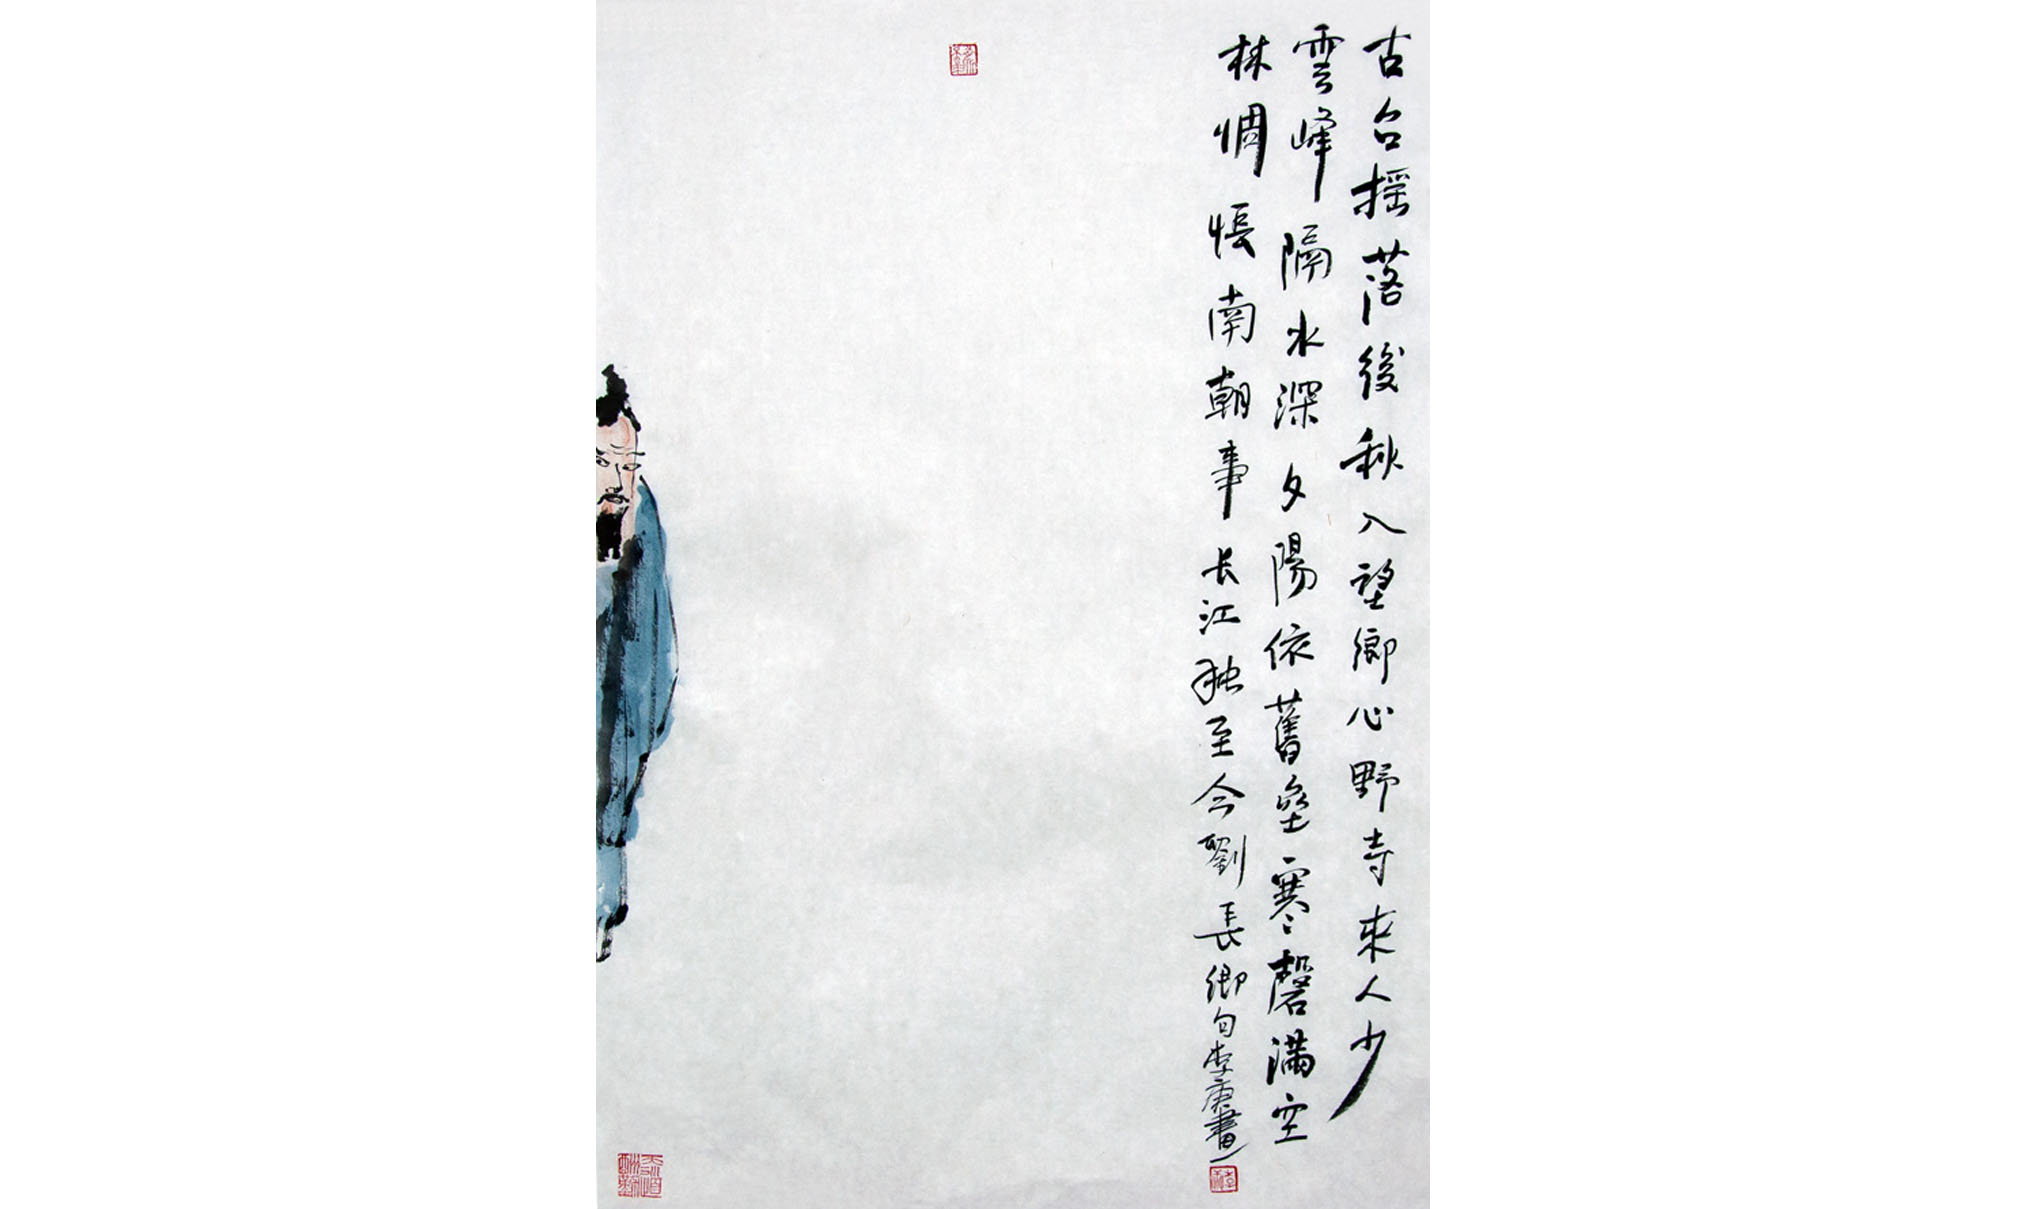 古台摇落後秋入望鄉心野寺來人少
雲峰隔水深夕陽依舊壘寒磬满空
林惆悵南朝事长江独至今劉長卿句李庚畫